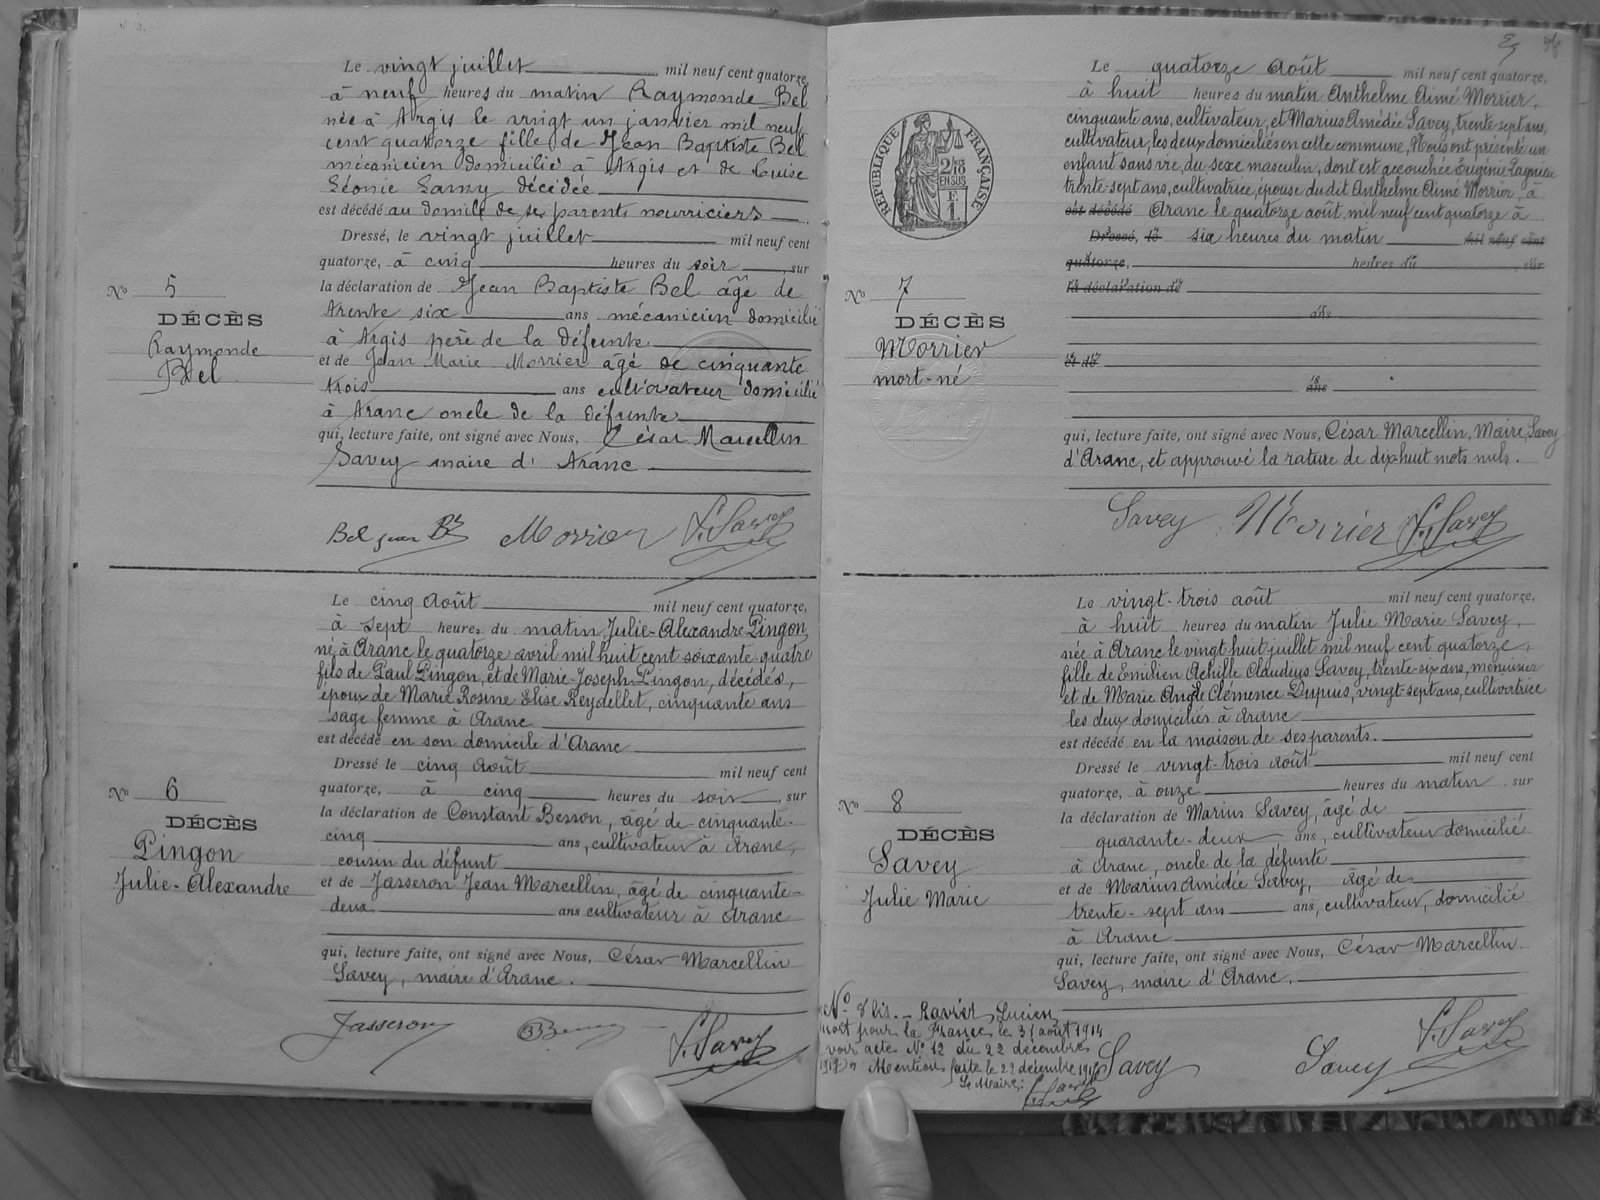 Le vingt juillet mil neuf cent quatorze,
à neuf heures du matin Raymonde Bel
née à Argis le vingt un janvier mil neuf
cent quatorze fille de Jean Baptiste Bel
mécanicien domicilié à Argis et de Louise
Léonie décédée
est décédé au domile de ses parents nourriciers
Dressé, le vingt juillet mil neuf cent
quatorze, à cinq heures du soir, sur
la déclaration de Jean Baptiste Bel âgé de
trente six ans mécanicien domicilié
à Argis père de la défunte
et de Jean Marie Morrier âgé de cinquante
trois ans cultivateur domicilié
à Aranc oncle de la défunte
qui, lecture faite, ont signé avec Nous, César Marcellin
Savey maire d'Aranc
No 5
DÉCÈS
Raymonde
Bel
Bel jean Bte Morrier Savey
Le cinq Août mil neuf cent quatorze,
à sept heures du matin Julie-Alexandre Pingon,
né à Aranc le quatorze avril mil huit cent soixante quatre
fils de Paul Pingon, et de Marie-Joseph Pingon, décédés,
époux de Marie Rosine Elise Reydellet, cinquante ans
sage femme à Aranc
est décédé en son domicile d'Aranc
Dressé le cinq Août mil neuf cent
quatorze, à cinq heures du soir, sur
la déclaration de Constant Besson, âgé de cinquante-
cinq ans, cultivateur à Aranc,
cousin du défunt
et de Jasseron Jean Marcellin, âgé de cinquante-
deux ans cultivateur à Aranc
qui, lecture faite, ont signé avec Nous, César Marcellin
Savey, maire d'Aranc.
No 6
DÉCÈS
Pingon
Julie-Alexandre
Jasseron Savey
Le quatorze Août mil neuf cent quatorze,
à huit heures du matin Anthelme Aimé Morrier,
cinquante ans, cultivateur, et Marius Amédée Savey, trente sept ans,
cultivateur, les deux domiciliés en cette commune, Nous ont présenté un
enfant sans vie, du sexe masculin, dont est accouchée Eugénie
trente-sept ans, cultivatrice, épouse du dit Anthelme Aimé Morrier, à
est décédé Aranc le quatorze août mil neuf cent quatorze à
Dressé, le six heures du matin mil neuf cent
quatorze, heures du , sur
la déclaration de
ans
et de
ans
qui, lecture faite, ont signé avec Nous, César Marcellin, Maire Savey
d'Aranc, et approuvé la rature de dix-huit mots nuls.
RÉPUBLIQUE FRANÇAISE
2/10
EN SUS
F.
1.
No 7
DÉCÈS
Morrier
mort-né
Savey Morrier Savey
Le vingt-trois août mil neuf cent quatorze,
à huit heures du matin Julie Marie Savey,
née à Aranc le vingt huit juillet mil neuf cent quatorze,
fille de Emilien Achille Claudius Savey, trente-six ans, menuisier
et de Marie Angèle Clémence Dupuis, vingt-sept ans, cultivatrice
les deux domiciliés à Aranc
est décédé en la maison de ses parents.
Dressé le vingt-trois Août mil neuf cent
quatorze, à onze heures du matin, sur
la déclaration de Marius Savey, âgé de
quarante-deux ans, cultivateur domicilié
à Aranc, oncle de la défunte
et de Marius Amédée Savey, âgé de
trente-sept ans ans, cultivateur, domicilié
à Aranc
qui, lecture faite, ont signé avec Nous, César Marcellin
Savey, maire d'Aranc.
No 8
DÉCÈS
Savey
Julie Marie
No 8 bis. - Ravier Lucien
mort pour la France le 31 août 1914
voir acte No 12 du 22 décembre
Mention faite le 22 décembre
Le Maire:
Savey Savey Savey